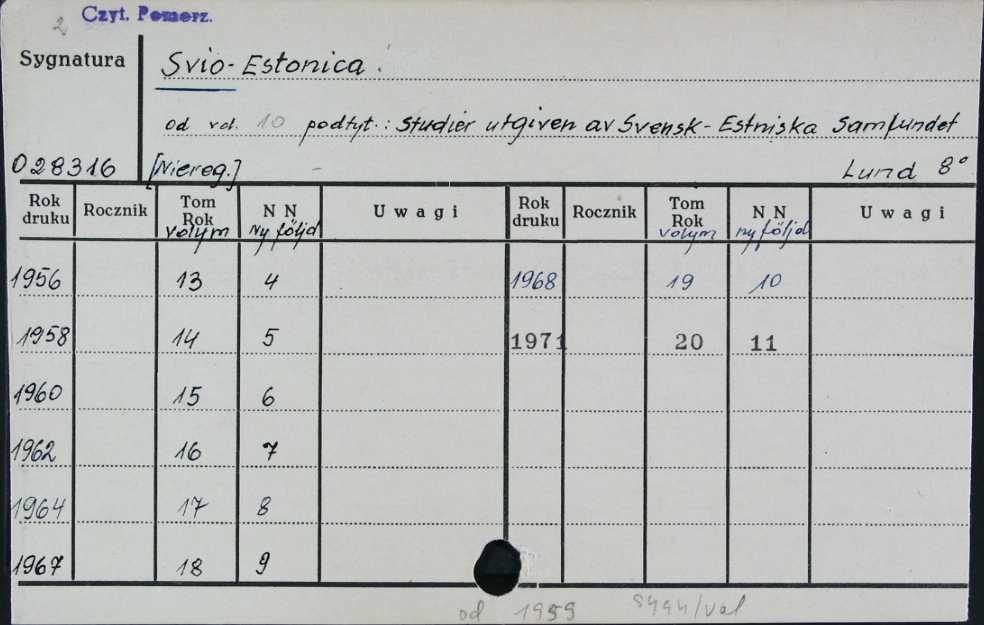 2 Czyt. Pomorz.
Sygnatura Svio-Estonica.
od vol. 10 podtyt.: Studier utgiven av Svensk-Estniska Samfundet
028316 [Niereg.] Lund 8°
Rok druku Rocznik Tom Rok volym N N Ny följd Uwagi Rok druku Rocznik Tom Rok volym N N ny följd Uwagi
1956 13 4 1968 19 10
1958 14 5 1971 20 11
1960 15 6
1962 16 7
1964 17 8
1967 18 9
od 1959